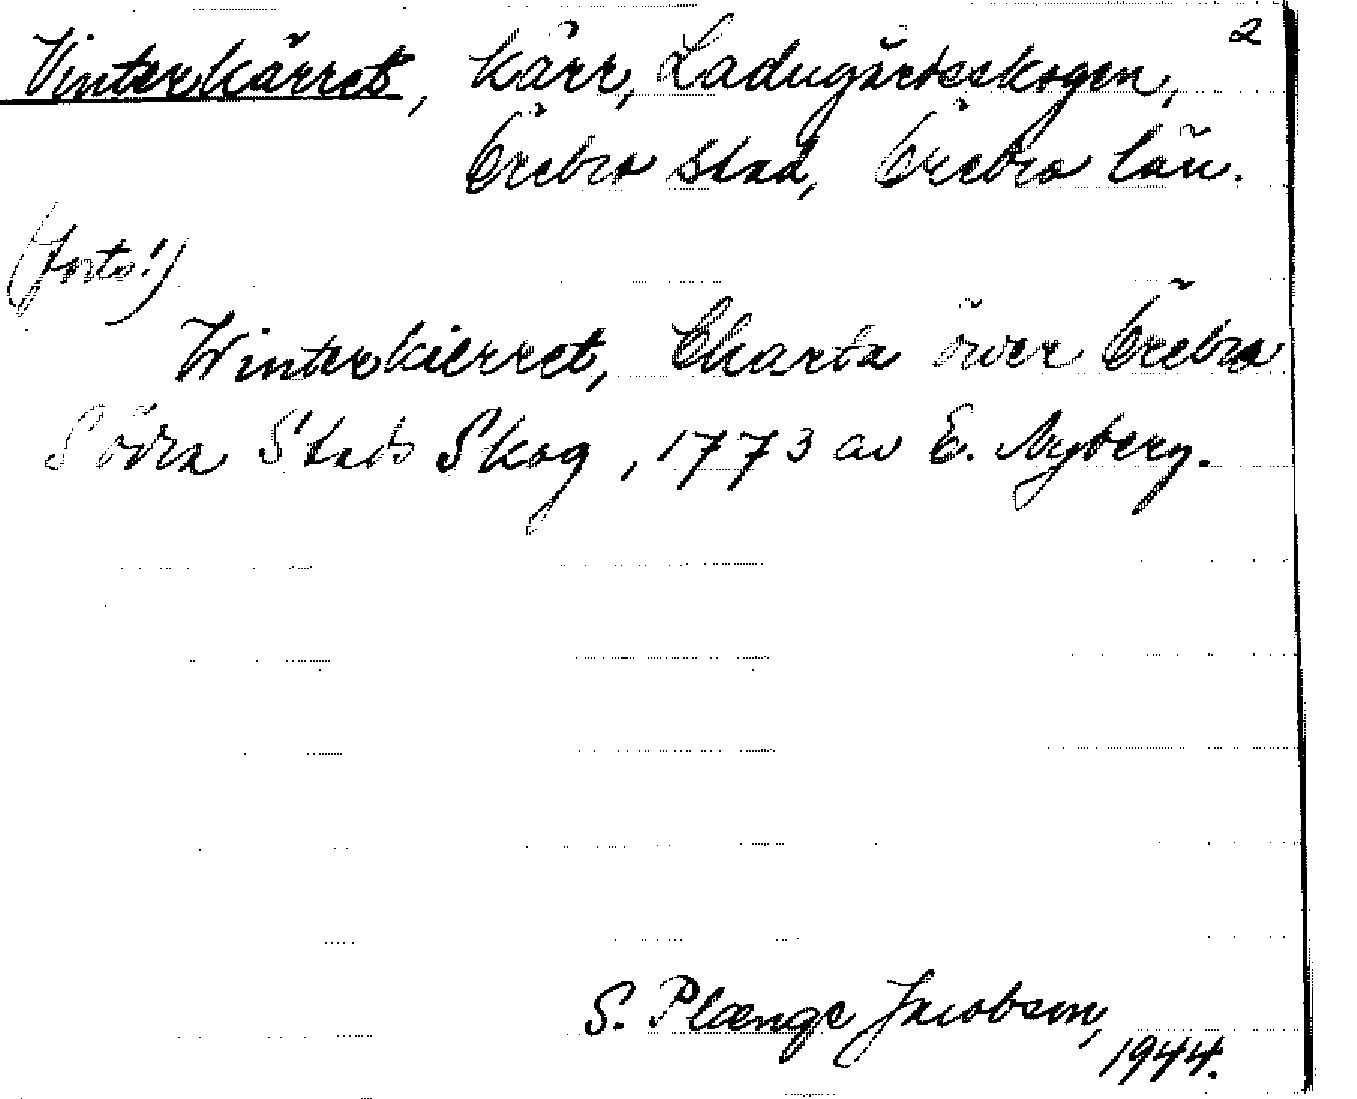 2
Vinterkärret, kärr, Ladugårdsskogen,
Örebro stad, Örebro län.
(forts!)
Winterkierret, Charta över Örebro
Södra Stads Skog, 1773 av E. Nyberg.
S. Plænge Jacobson,
1944.